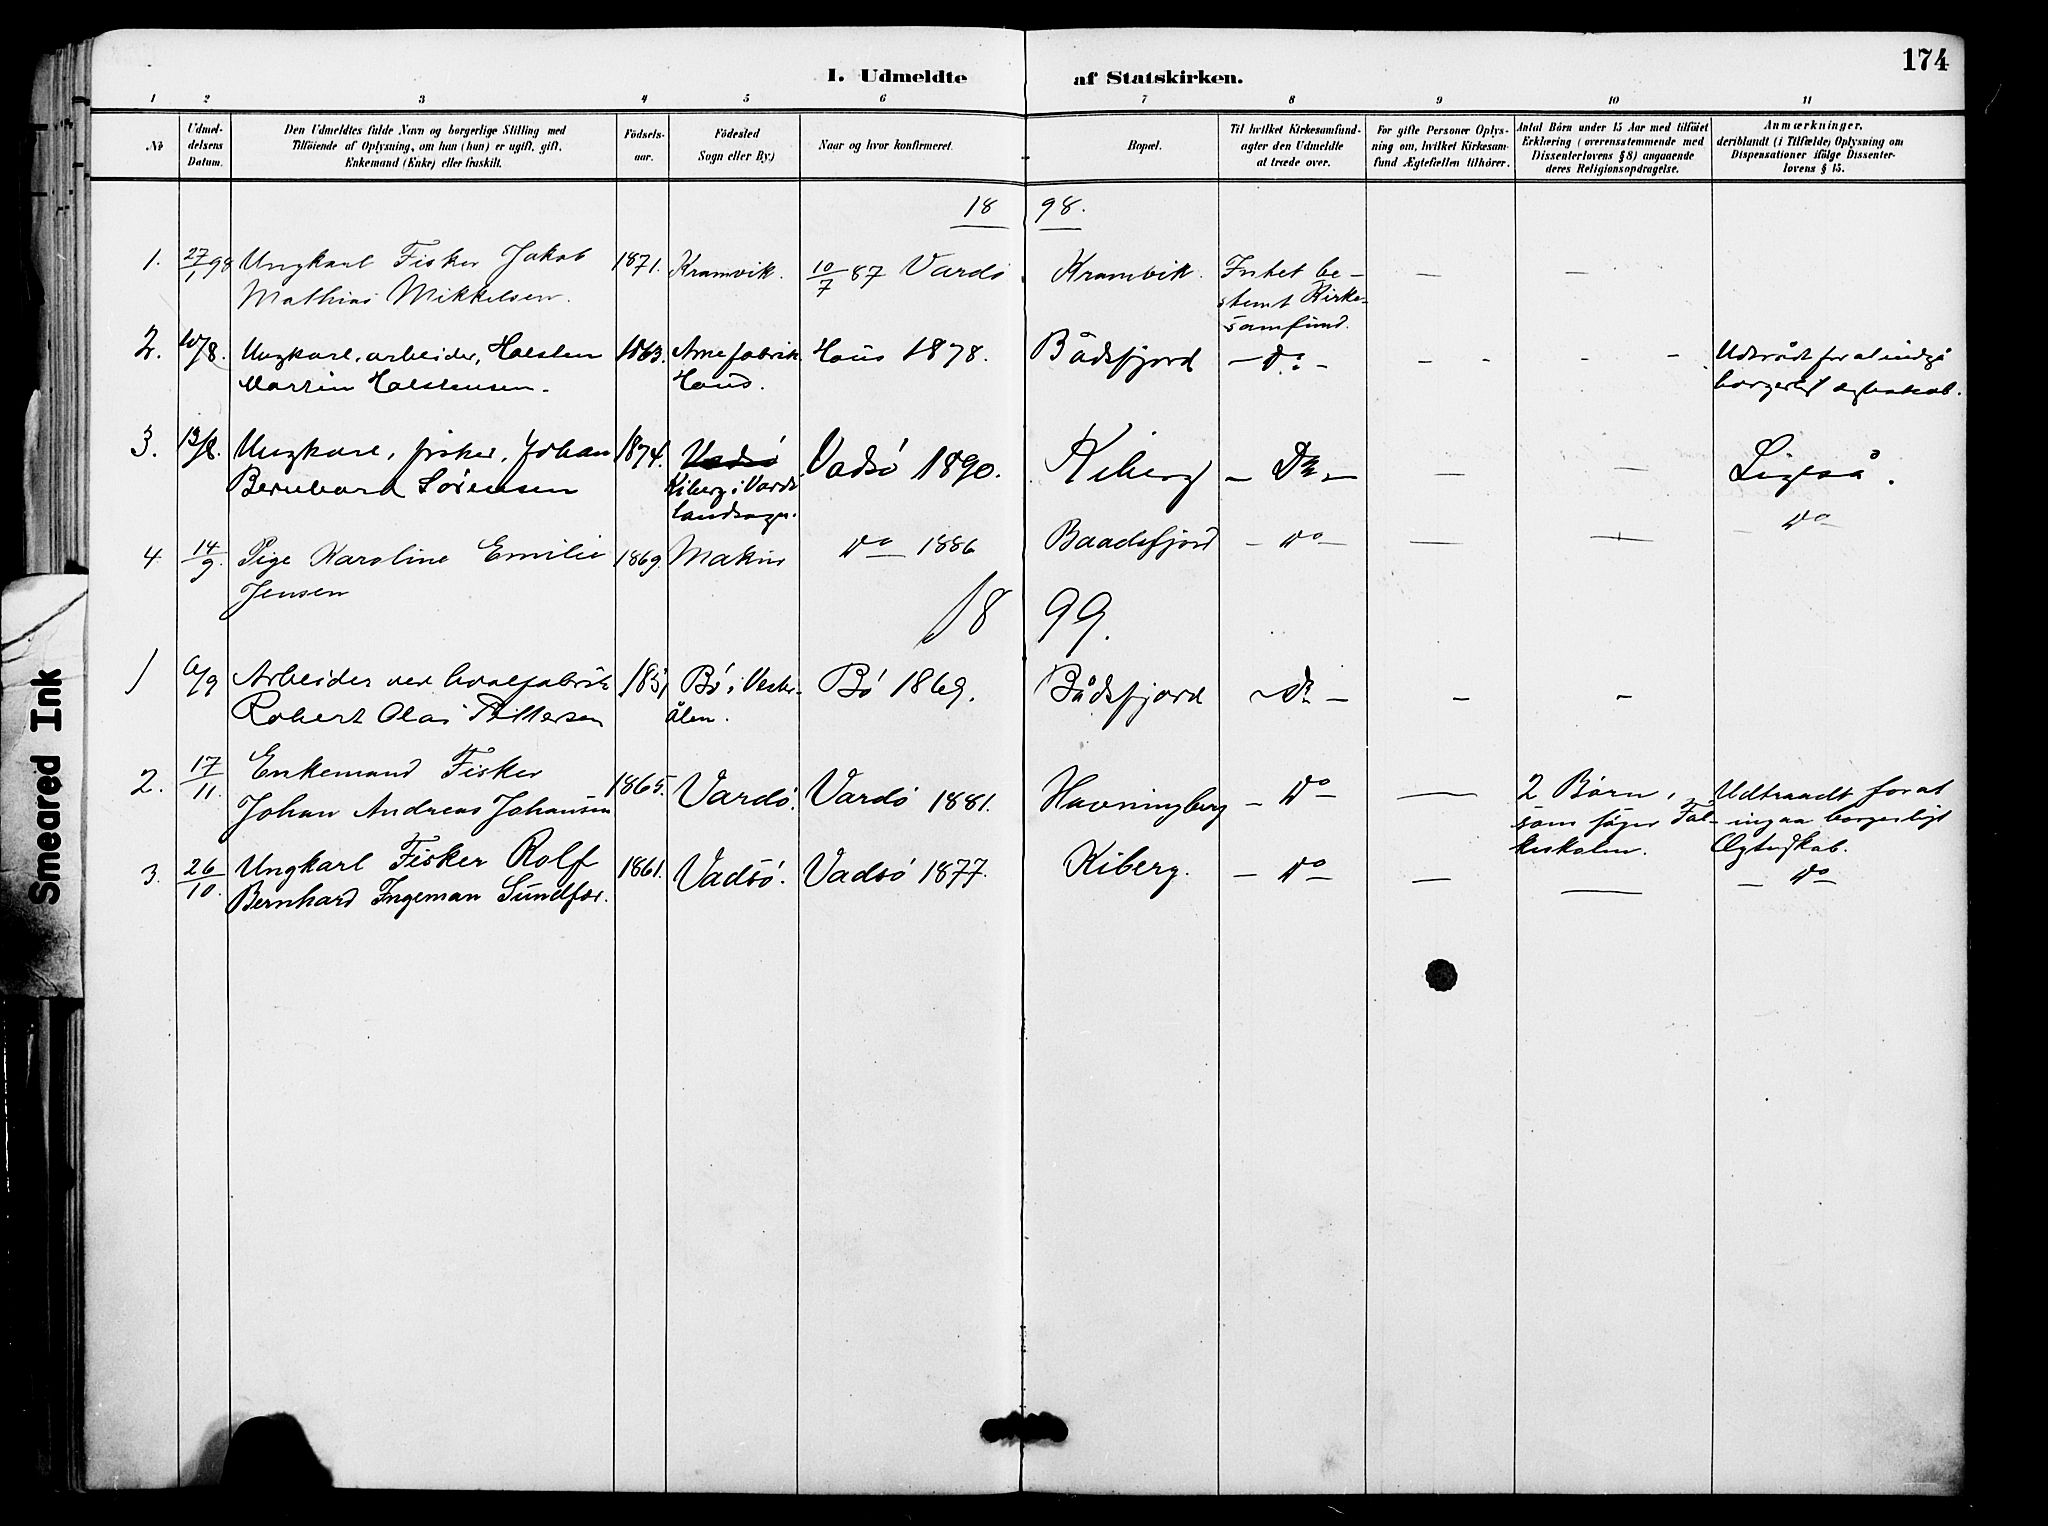 174
I. Udmeldte af Statskirken.
1 2 3 4 5 6 7 8 9 10 11
No
Udmel-
delsens
Datum.
Den Udmeldtes fulde Navn og borgerlige Stilling med
Tilföiende af Oplysning, om han (hun) er ugift, gift,
Enkemand (Enke) eller fraskilt.
Födsels-
aar.
Födested
Sogn eller By.)
Naar og hvor konfirmeret.
Bopæl.
Til hvilket Kirkesamfund-
agter den Udmeldte
at træde over.
For gifte Personer Oplys-
ning om, hvilket Kirkesam-
fund Ægtefællen tilhörer.
Antal Börn under 15 Aar med tilföiet
Erklæring (overensstemmende med
Dissenterlovens § 8) angaaende
deres Religionsopdragelse.
Anmærkninger,
deriblandt (i Tilfælde) Oplysning om
Dispensationer ifölge Dissenter-
lovens § 15.
18 98.
1. 27/1 98 Ungkarl Fisker Jakob
Mathias Mikkelsen.
1871. Kramvik. 10/7 87 Vardö Kramvik.
Intet be-
stemt Kirke-
samfund.
— —
2. 10/8. Ungkarl, arbeider, Holsten
Martin Holstensen.
1863. Arne fabrik
Haus.
Haus 1878. Bådsfjord - Do - - - - -
Udtrådt for at indgå
borgerligt ægteskab.
3. 13/8. Ungkarl, fisker, Johan
Bernhard Sörensen
1874. Vadsö
Kiberg i Vardö
landsogn.
Vadsö 1890. Kiberg - Do - — — Ligeså.
4 14/9 Pige Karoline Emilie
Jensen
1869. Makur Do 1886 Baadsfjord - Do — — - Do
18 99.
1 6/9 Arbeider ved hvalfabrik
Robert Olai Pettersen
1851 Bö i Vester-
ålen.
Bö 1869. Bådsfjord - Do - — —
2. 17/11. Enkemand Fisker
Johan Andreas Johansen
1865. Vardö. Vardö 1881. Havningberg - Do —
2 Börn,
som söger Fol-
keskolen.
Udtraadt for at
ingaa borgerligt
Ægteskab.
3. 26/10. Ungkarl Fisker Rolf
Bernhard Ingeman Sundfær.
1861. Vadsö. Vadsö 1877. Kiberg. — Do — — — Do
Smeared Ink